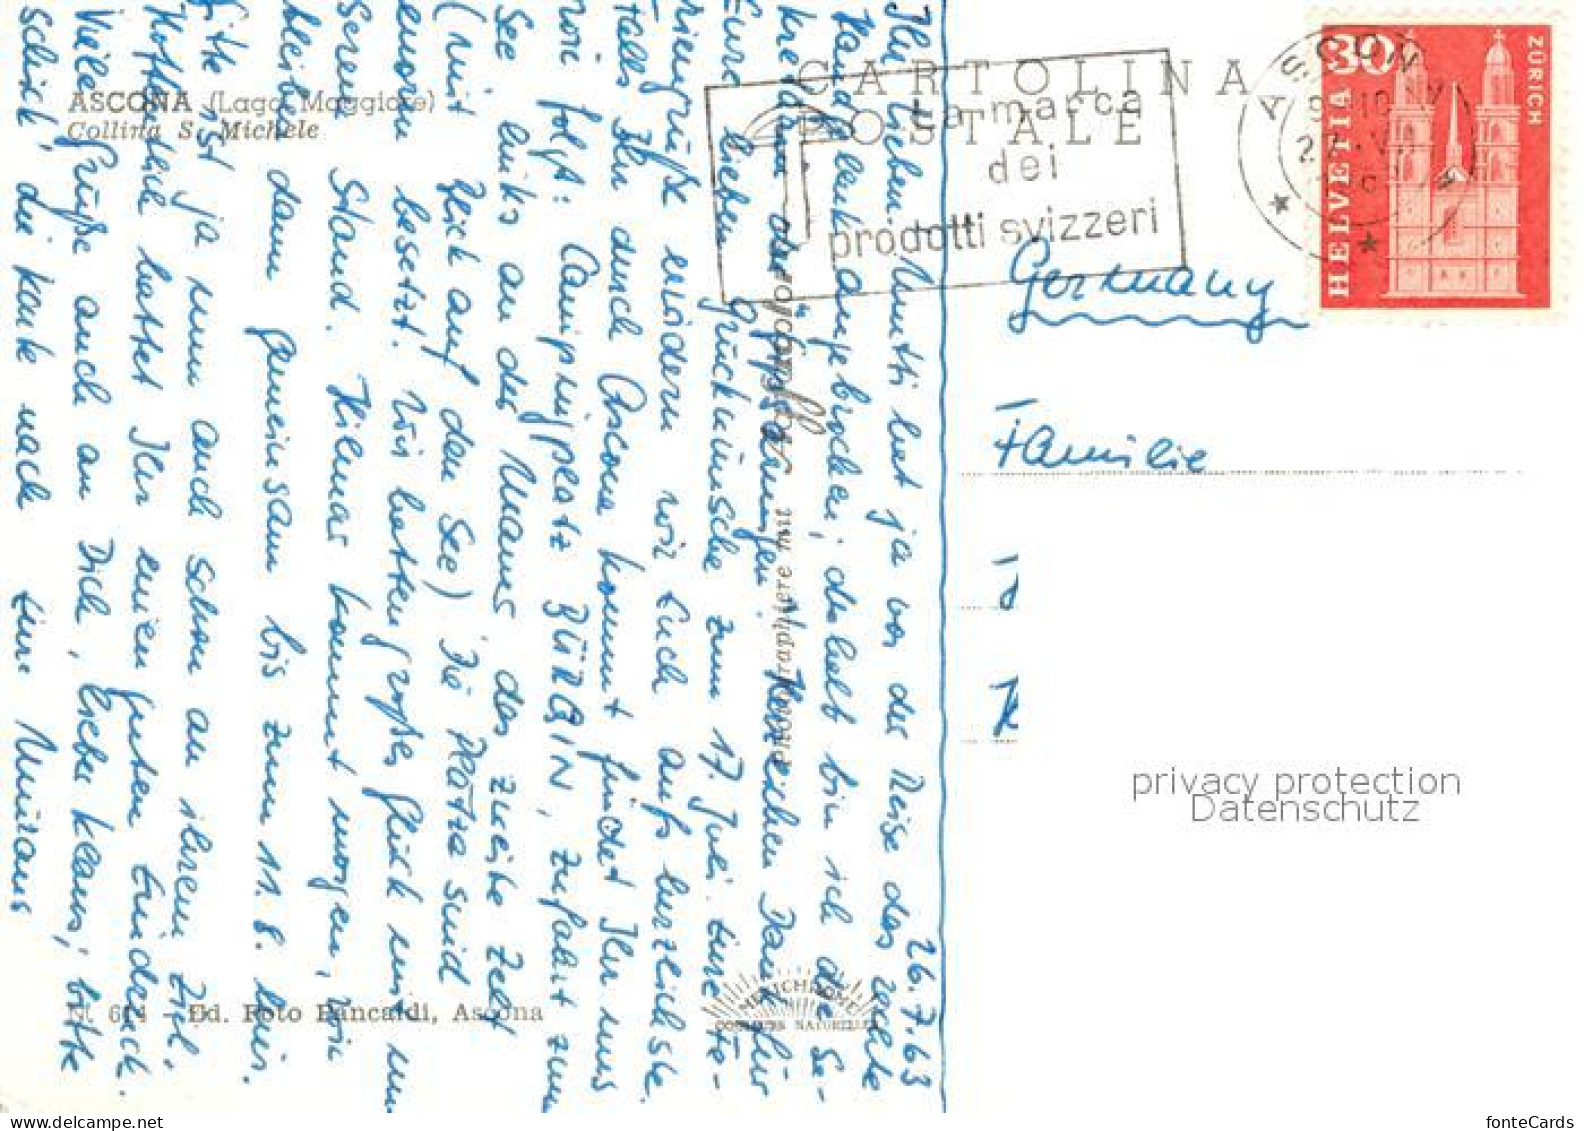 CARTOLINA
POSTALE
la marca
dei
prodotti svizzeri
ASCONA
HELVETIA
30
ZÜRICH
ASCONA (Lago Maggiore)
Collina S. Michele
Germany
Familie
privacy protection
Datenschutz
26.7.63
Ihr Lieben. Mutti hat ja vor der Reise das rechte
Handgelenk angebrochen; deshalb bin ich die Se-
kretärin der Gipsarmigen. Herzlichen Dank für
Eure lieben Glückwünsche zum 17. Juli. Eure Fe-
riengrüße erwidern wir Euch aufs herzlichste.
Falls Ihr durch Ascona kommt findet Ihr uns
wie folgt: Campingplatz BÜRGIN, Zufahrt zum
See links an der Mauer das zweite Zelt
(mit Blick auf den See) Die Plätze sind
enorm besetzt. Wir hatten großes Glück mit un
serem Stand. Hilmar kommt morgen, wir
bleiben dann gemeinsam bis zum 11. 8. hier.
ist ja nun auch schon an ihrem Ziel.
Hoffentlich hattet Ihr einen guten Eindruck.
Viele Grüße auch an Dich, lieber Klaus; bitte
schick' die Karte nach. Eure
Nr. 614 - Ed. Foto Pancaldi, Ascona
MEXICHROME
COULEURS NATURELLES
fonteCards